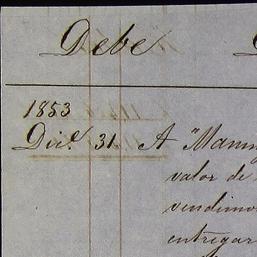 Debe
1853
Dice. 31 A "Manu
valor de
vendimo
entregar